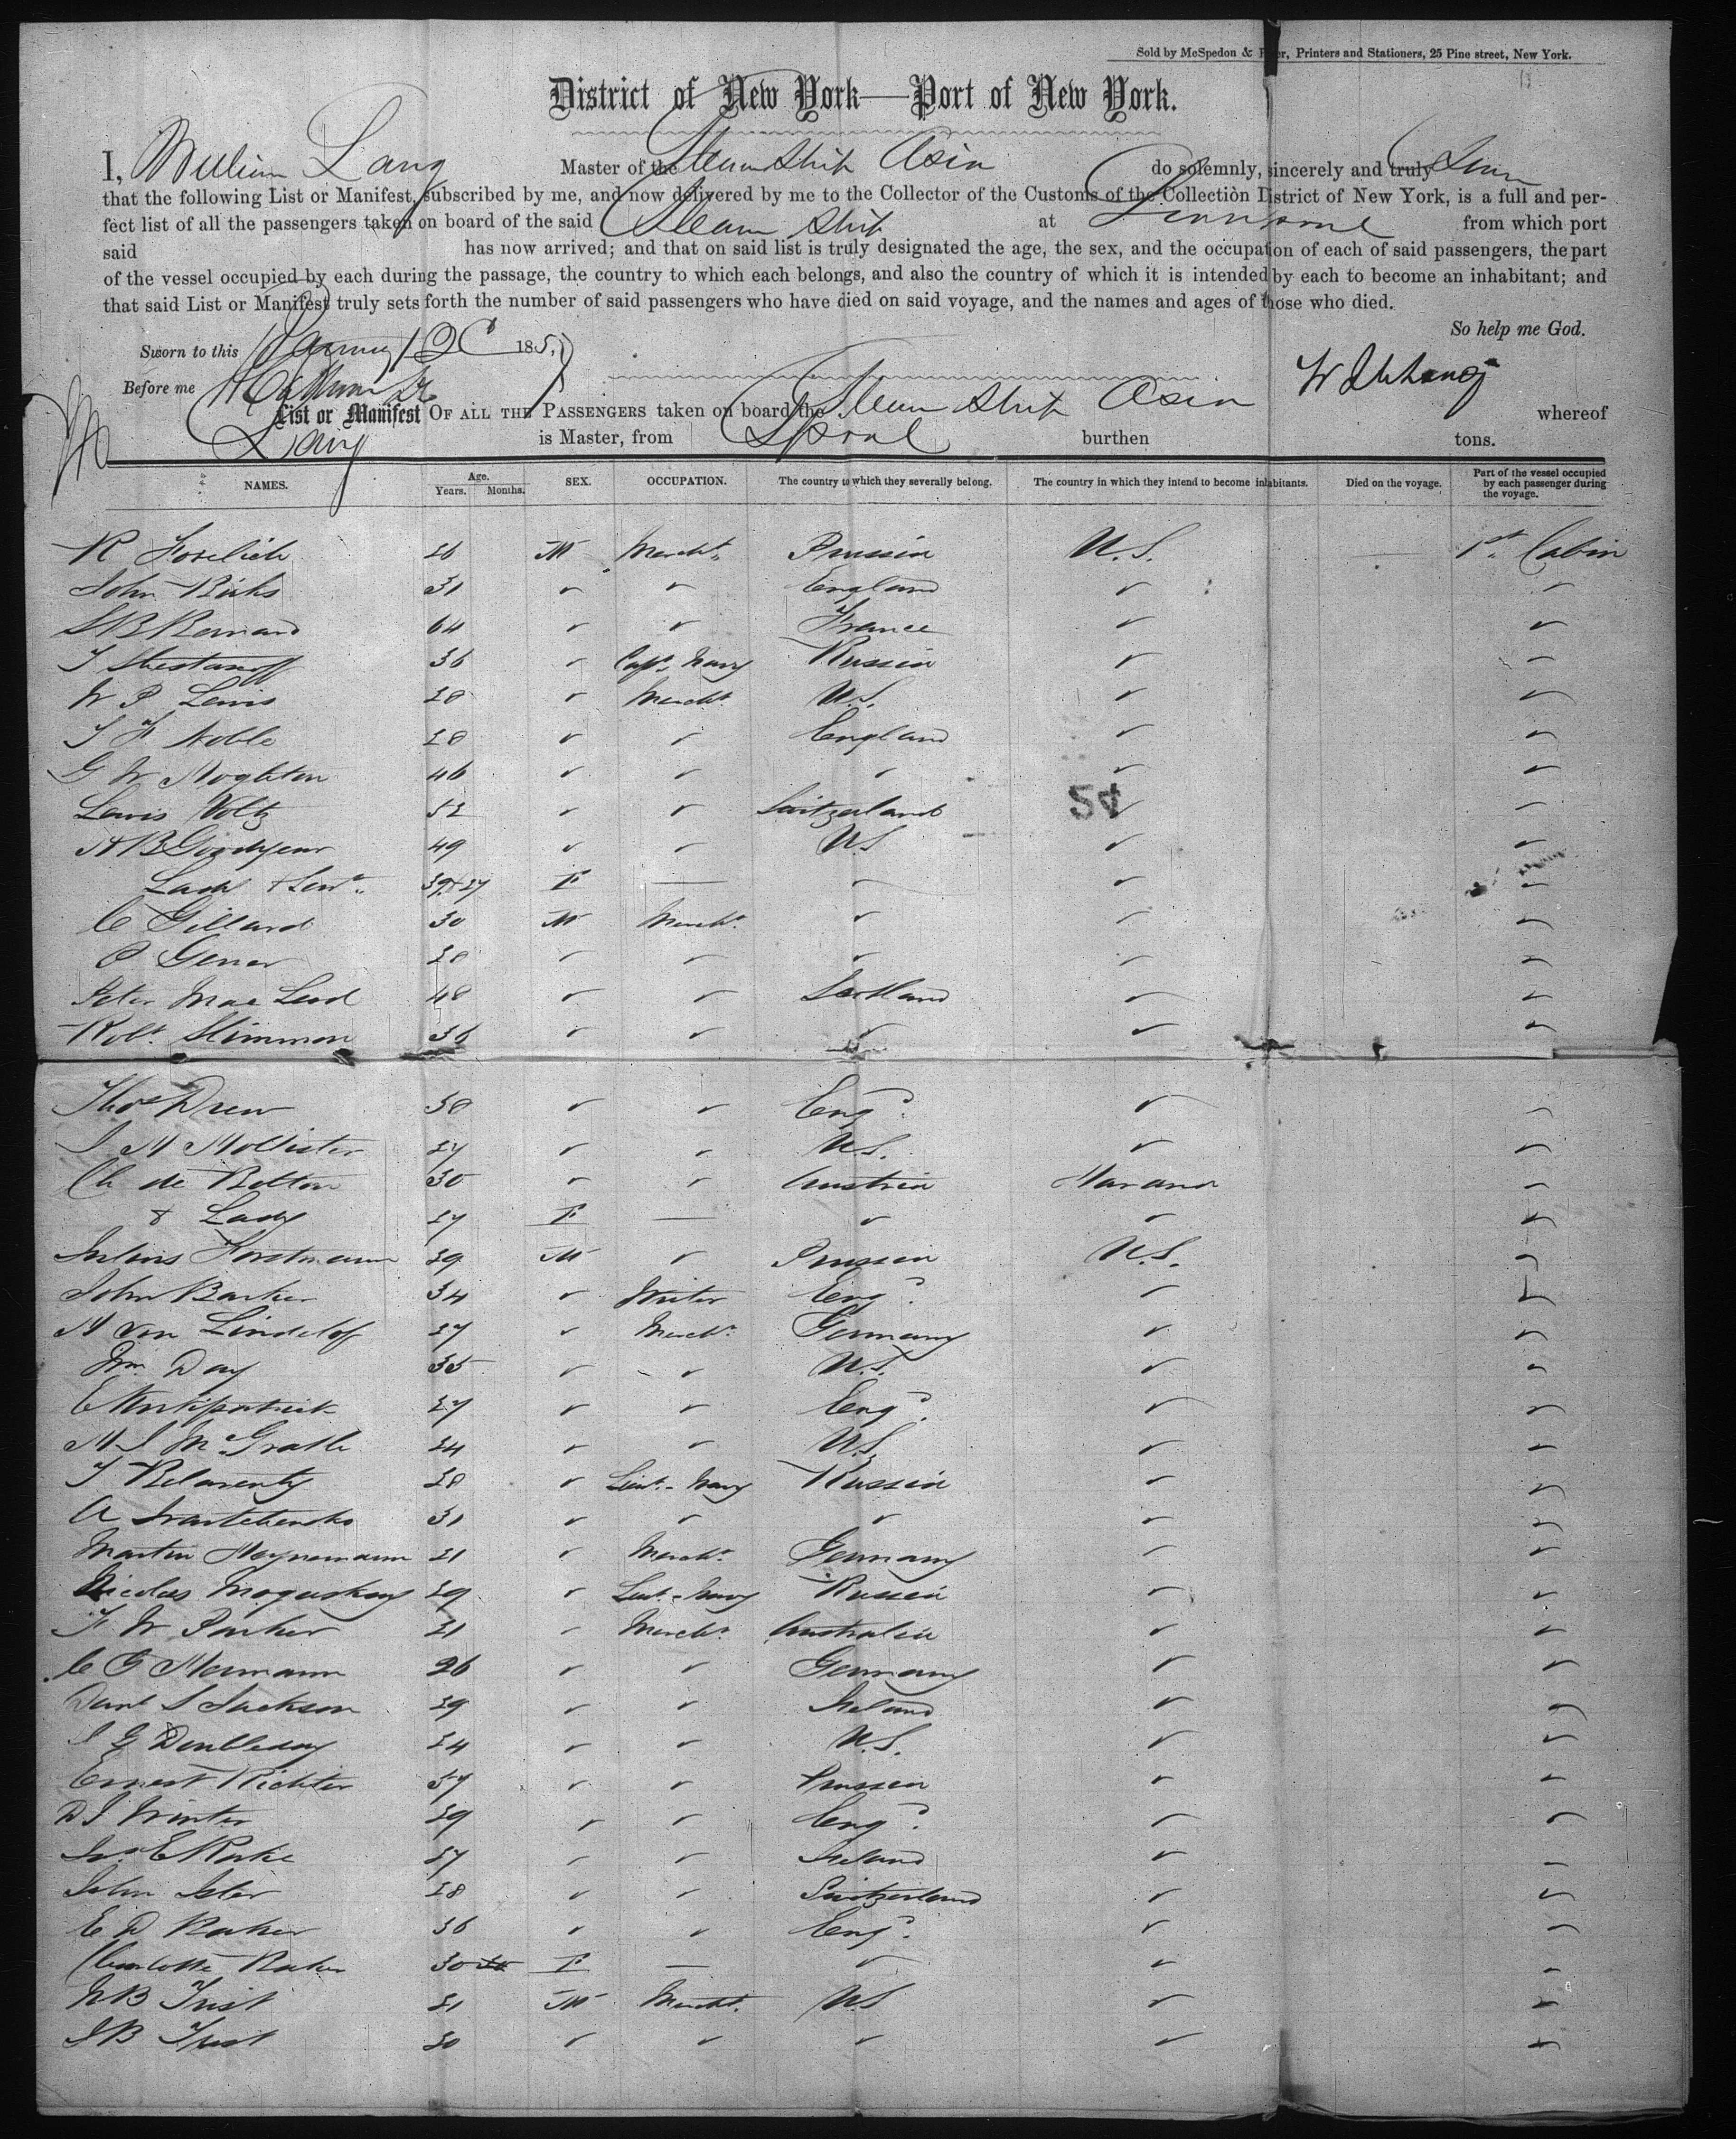 Sold by McSpedon & Printers and Stationers, 25 Pine street, New York.
District of New York—Port of New York.
I, William Lang Master of the Steam Ship Asia do solemnly, sincerely and truly Swear
that the following List or Manifest, subscribed by me, and now delivered by me to the Collector of the Customs of the Collection District of New York, is a full and per-
fect list of all the passengers taken on board of the said Steam Ship at Liverpool from which port
said has now arrived; and that on said list is truly designated the age, the sex, and the occupation of each of said passengers, the part
of the vessel occupied by each during the passage, the country to which each belongs, and also the country of which it is intended by each to become an inhabitant; and
that said List or Manifest truly sets forth the number of said passengers who have died on said voyage, and the names and ages of those who died.
So help me God.
Sworn to this 185
Before me
List or Manifest OF ALL THE PASSENGERS taken on board the Steam Ship Asia whereof
Lang is Master, from Lpool burthen tons.
NAMES. Age. Years. Months. SEX. OCCUPATION. The country to which they severally belong. The country in which they intend to become inhabitants. Died on the voyage. Part of the vessel occupied by each passenger during the voyage.
R 26 M Marcht. Prussia U.S. 1st. Cabin
John Birks 31 ✓ ✓ England ✓ ✓
S B Bernard 64 ✓ ✓ France ✓ ✓
36 ✓ Capt. Navy Russia ✓ ✓
W P Lewis 28 ✓ Marcht. U.S. ✓ ✓
Noble 28 ✓ ✓ England ✓ ✓
G W 46 ✓ ✓ ✓ ✓ ✓
Louis Voltz 52 ✓ ✓ Switzerland 24 ✓ ✓
Goodyear 49 ✓ ✓ U.S ✓ ✓
Lady & Servt. 39 & 27 F — ✓ ✓ ✓
C Gillard 30 M Marcht. ✓ ✓ ✓
P Gener 28 ✓ ✓ ✓ ✓ ✓
Peter Mac Leod 48 ✓ ✓ Scotland ✓ ✓
Robt. Slimmon 36 ✓ ✓ ✓ ✓ ✓
Thos Drew 38 ✓ ✓ Engd. ✓ ✓
Hollister 27 ✓ ✓ U.S. ✓ ✓
Ch de Bolton 30 ✓ ✓ Austria Havana ✓
& Lady 27 F — ✓ ✓ ✓
Julius Horstmann 29 M ✓ Prussia U.S. ✓
John Barker 34 ✓ Writer Engd. ✓ ✓
H von Lindelof 27 ✓ Marcht. Germany ✓ ✓
Wm. Day 35 ✓ ✓ U.S. ✓ ✓
Kirkpatrick 27 ✓ ✓ Engd. ✓ ✓
McGrath 24 ✓ ✓ U.S. ✓ ✓
28 ✓ Lieut. Navy Russia ✓ ✓
A 31 ✓ ✓ ✓ ✓ ✓
Martin Heynemann 21 ✓ Marcht. Germany ✓ ✓
Nicolas 29 ✓ Lieut. Navy Russia ✓ ✓
W Parker 21 ✓ Marcht. Australia ✓ ✓
C G Hermann 26 ✓ ✓ Germany ✓ ✓
Danl S Jackson 29 ✓ ✓ Ireland ✓ ✓
Doubleday 24 ✓ ✓ U.S. ✓ ✓
Ernest Richter 37 ✓ ✓ Prussia ✓ ✓
Winter 29 ✓ ✓ Engd. ✓ ✓
27 ✓ ✓ Ireland ✓ ✓
John Isler 28 ✓ ✓ Switzerland ✓ ✓
E D Baker 36 ✓ ✓ Engd. ✓ ✓
Charlotte Baker 30 F — ✓ ✓ ✓
N B Trist 21 M Marcht. U.S ✓ ✓
Trist 20 ✓ ✓ ✓ ✓ ✓